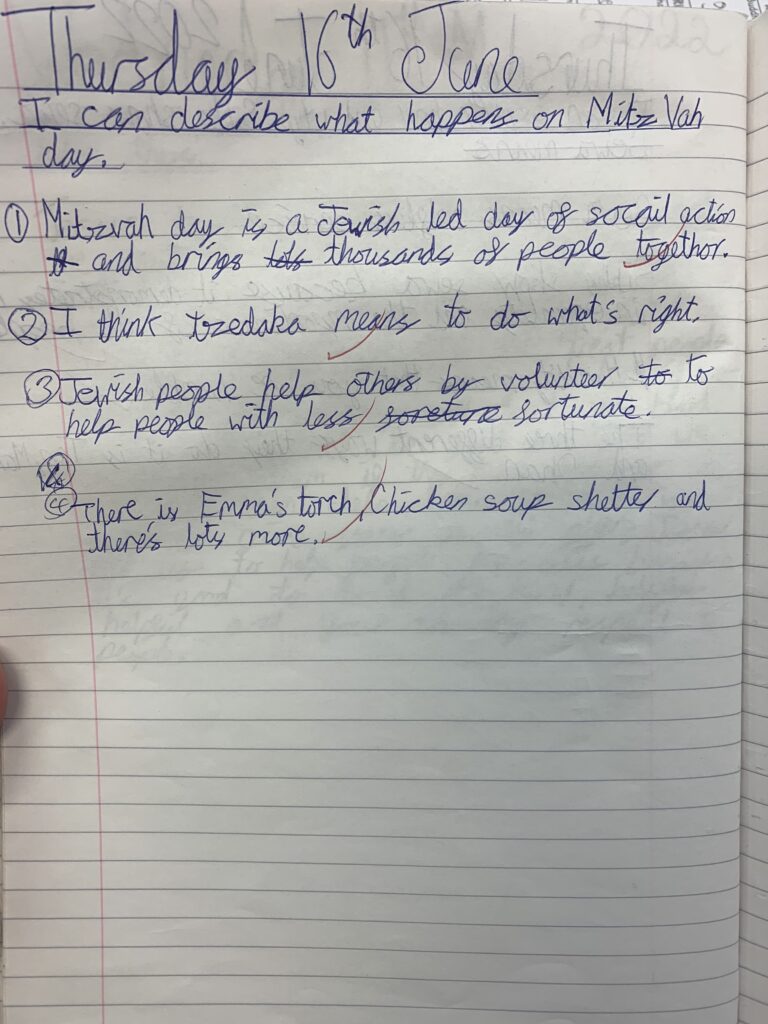 Thursday 16th June
I can describe what happens on MitzVah
day.
① Mitzvah day is a Jewish led day of socail action
and brings lots thousands of people togethor.
② I think tzedaka means to do what's right.
③ Jewish people help others by volunteer to to
help people with less foreture fortunate.
④ There is Emma's torch, Chicken soup shetter and
there's lots more.